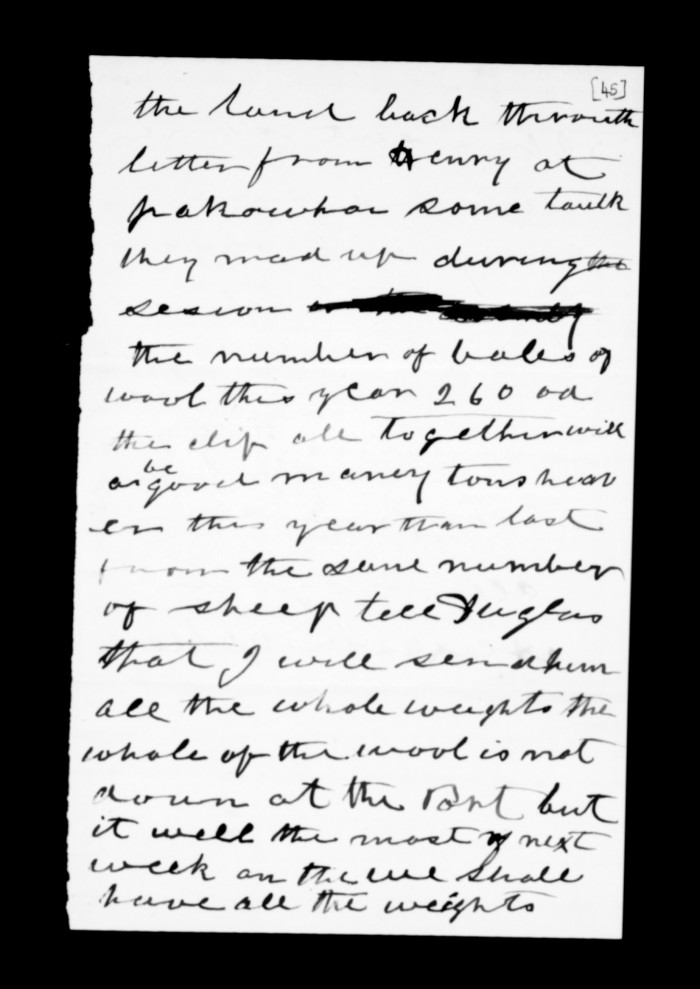 [45]
the land back throuth
letter from Henry at
pakowhai some taulk
they mad up during the
sesion
the number of bales of
wool this year 260 od
the clip all together will
be
as good maney tons heav
er this year than last
from the same number
of sheep tell Duglas
that I will send him
all the whole weights the
whole of the wool is not
down at the Port but
it well the most of next
week an the we shall
have all the weights